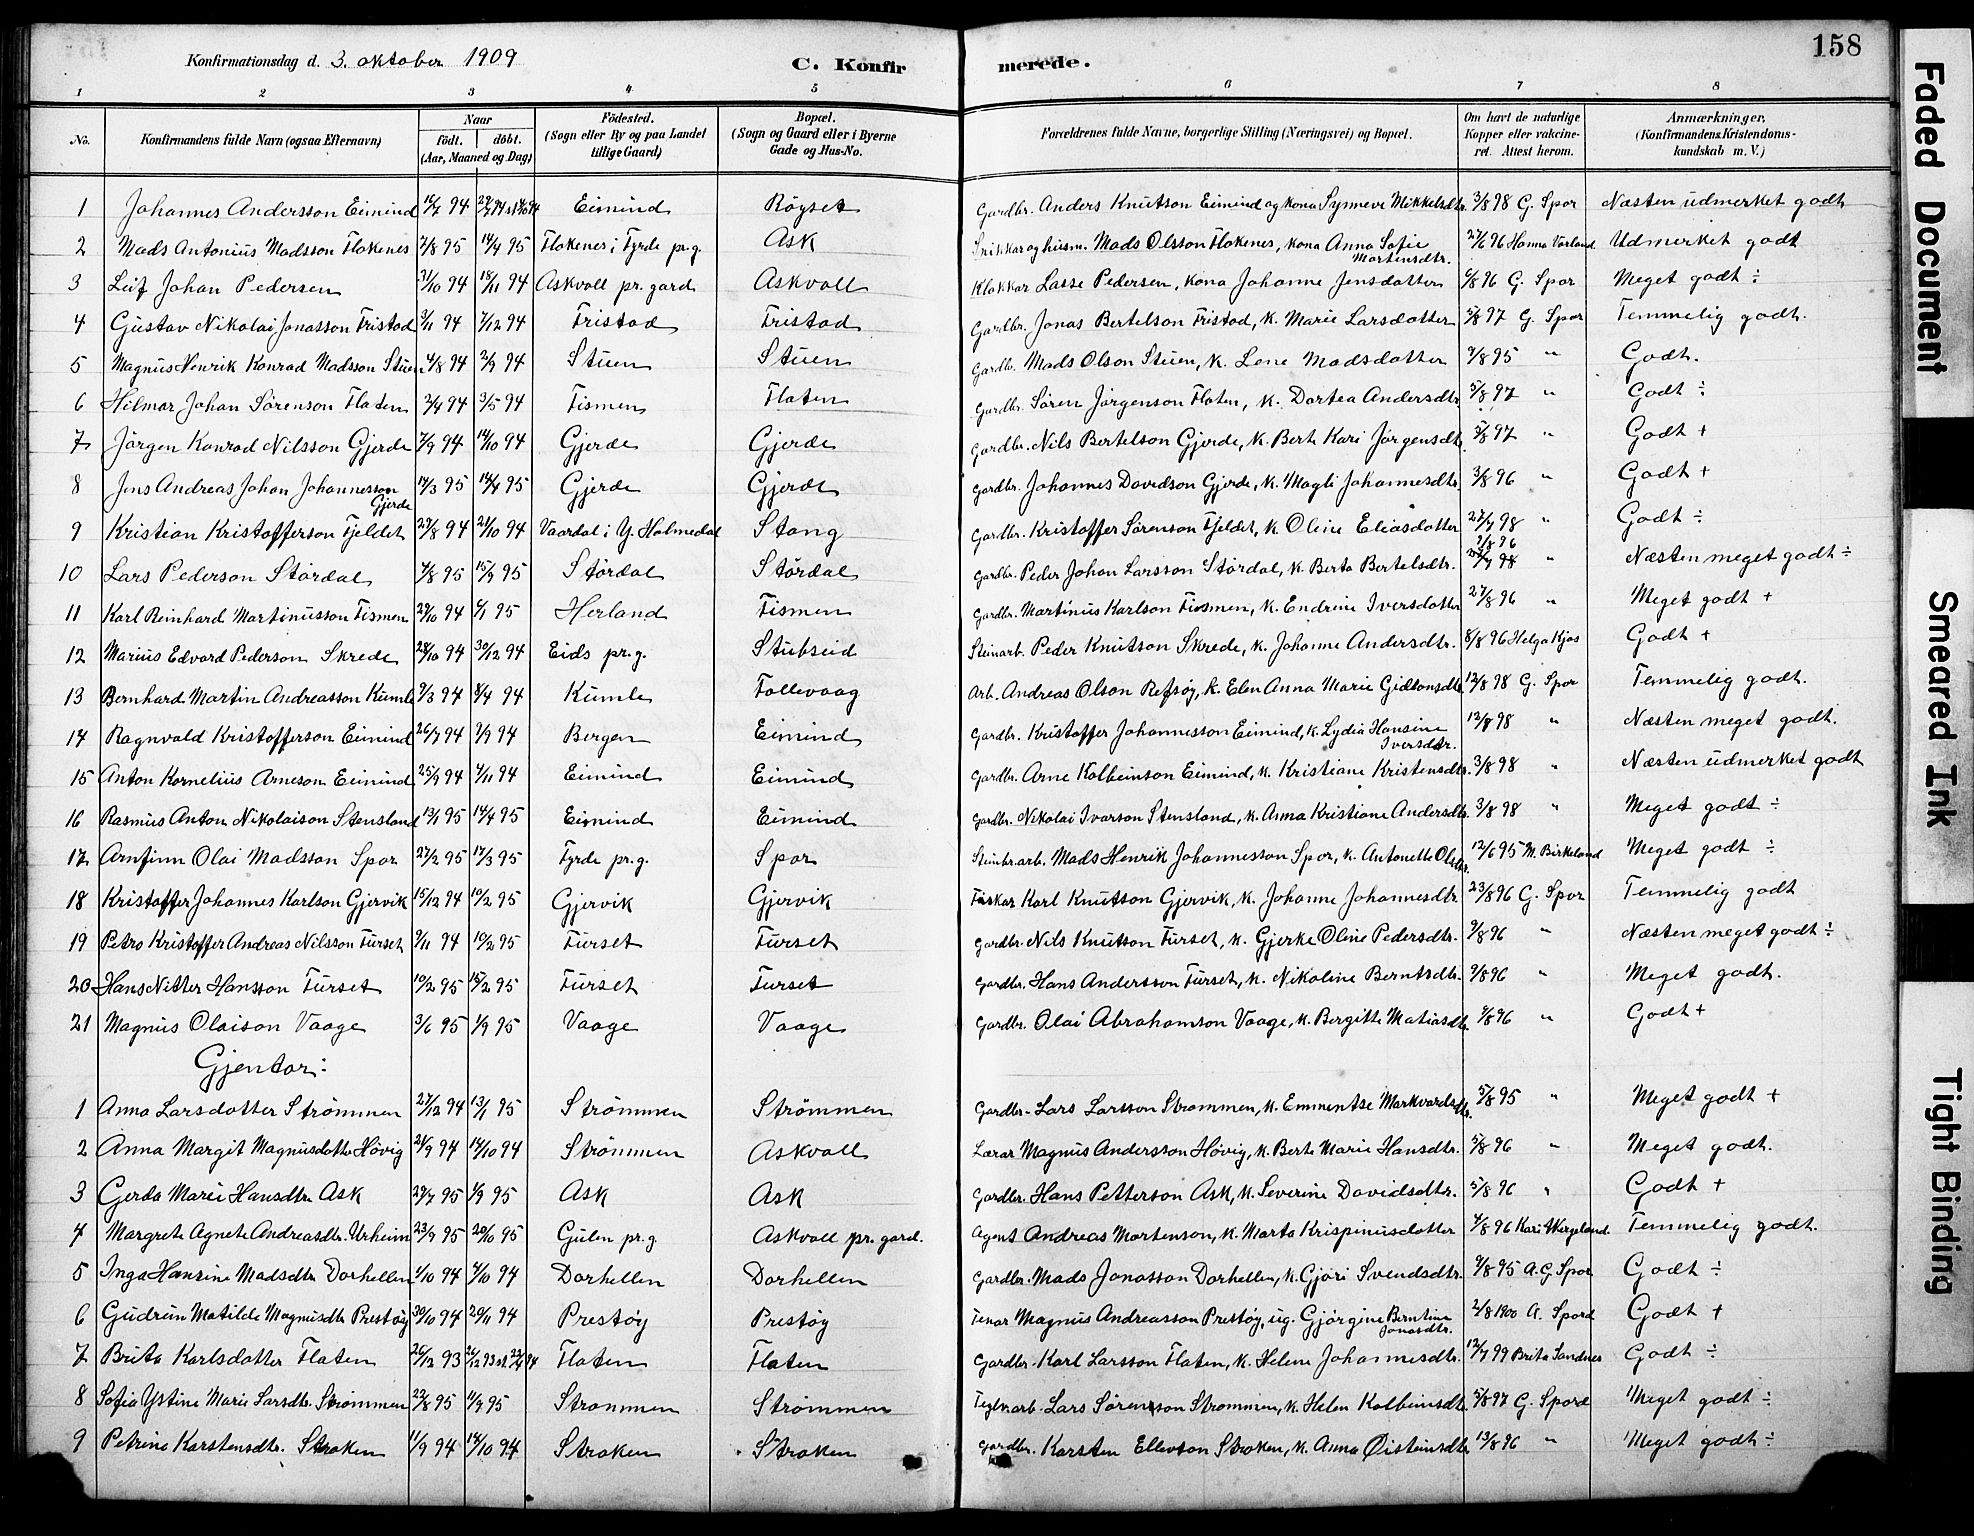 Konfirmationsdag d. 3. oktober 1909 C. Konfirmerede. 158
1 2 3 4 5 6 7 8
No. Konfirmandens fulde Navn (ogsaa Efternavn) Naar født. døbt. (Aar, Maaned og Dag) Fødested. (Sogn eller By og paa Landet tillige Gaard) Bopæl. (Sogn og Gaard eller i Byerne Gade og Hus-No. Forældrenes fulde Navne, borgerlige Stilling (Næringsvei) og Bopæl. Om havt de naturlige Kopper eller vakcineret. Attest herom. Anmærkninger. (Konfirmandens Kristendomskundskab m. V.)
1 Johannes Andersson Eimind 16/7 94 Eimind Røyset Gardbr. Anders Knutson Eimind og kona Synneve Mikkelsdtr. 3/8 98 G. Spor Næsten udmerket godt
2 Mads Antonius Madsson Flokenes 2/8 95 14/4 95 Flokenes i Fyrde pr.g. Ask Snikkar og husm. Mads Olsson Flokenes, kona Anna Sofie Martensdtr. 27/6 96 Hanna Varland Udmerket godt
3 Leif Johan Pedersen 21/10 94 18/11 94 Askvoll pr. gard Askvoll Klokkar Lasse Pedersen, kona Johanne Jensdotter 6/8 96 G. Spor Meget godt ÷
4 Gustav Nikolai Jonasson Fristad 3/11 94 7/12 94 Fristad Fristad Gardbr. Jonas Bertelson Fristad, k. Marie Larsdotter 5/8 97 G. Spor Temmelig godt.
5 Magnus Henrik Konrad Madsson Stuen 4/8 94 2/9 94 Stuen Stuen Gardbr. Mads Olson Stuen, k. Lene Madsdotter 9/8 95 " Godt.
6 Hilmar Johan Sørenson Flaten 2/4 94 3/5 94 Fismen Flaten Gardbr. Søren Jørgenson Flaten, k. Dortea Andersdtr. 5/8 97 " Godt ÷
7 Jørgen Konrad Nilsson Gjerde 7/9 94 14/10 94 Gjerde Gjerde Gardbr. Nils Bertelson Gjerde, k. Berte Kari Jørgensdtr. 5/8 97 " Godt +
8 Jens Andreas Johan Johannesson Gjerde 17/3 95 14/4 95 Gjerde Gjerde Gardbr. Johannes Davidson Gjerde, k. Magli Johannesdtr. 3/8 96 " Godt +
9 Kristian Kristofferson Fjeldet 27/8 94 21/10 94 Vaardal i Y. Holmedal Stang Gardbr. Kristoffer Sørenson Fjeldet, k. Oline Eliasdotter 27/7 98 " Godt ÷
10 Lars Pederson Størdal 4/8 95 15/9 95 Størdal Størdal Gardbr. Peder Johan Larsson Størdal, k. Berta Bertelsdtr. 9/8 96 " Næsten meget godt ÷
11 Karl Reinhard Martinusson Fismen 27/10 94 6/1 95 Herland Fismen Gardbr. Martinus Karlson Fismen, k. Endrine Iversdotter 27/8 96 " Meget godt +
12 Marius Edvard Pederson Skrede 28/10 94 30/12 94 Eids pr.g. Stubseid Steinarb. Peder Knutson Skrede, k. Johanne Andersdtr. 8/8 96 Helga Kjøs Godt +
13 Bernhard Martin Andreasson Kumle 7/3 94 8/4 94 Kumle Follevaag Arb. Andreas Olson Refsøy, k. Elen Anna Marie Gidionsdtr. 12/8 98 G. Spor Temmelig godt.
14 Ragnvald Kristofferson Eimind 26/7 94 9/9 94 Bergen Eimind Gardbr. Kristoffer Johannesson Eimind, k. Lydia Hansine Iversdtr. 12/8 98 " Næsten meget godt.
15 Anton Kornelius Arneson Eimind 25/9 94 4/11 94 Eimind Eimind Gardbr. Arne Kolbeinson Eimind, k. Kristiane Kristensdtr. 3/8 98 " Næsten udmerket godt
16 Rasmus Anton Nikolaison Stensland 13/1 95 14/4 95 Eimind Eimind Gardbr. Nikolai Ivarson Stensland, k. Anna Kristiane Andersdtr. 3/8 98 " Meget godt ÷
17 Arnfinn Olai Madsson Spor 27/2 95 17/3 95 Fyrde pr.g. Spor Steinbr.arb. Mads Henrik Johannesson Spor, k. Antonette Olsdtr. 12/6 95 M. Birkeland Meget godt ÷
18 Kristoffer Johannes Karlson Gjervik 15/12 94 10/2 95 Gjervik Gjervik Fiskar Karl Knutson Gjervik, k. Johanne Johannesdtr. 23/8 96 G. Spor Temmelig godt
19 Petro Kristoffer Andreas Nilsson Furset 9/11 94 10/2 95 Furset Furset Gardbr. Nils Knutson Furset, k. Gjerke Oline Pedersdtr. 9/8 96 " Næsten meget godt ÷
20 Hans Nitter Hansson Furset 10/2 95 15/2 95 Furset Furset Gardbr. Hans Andersson Furset, k. Nikoline Berntsdtr. 9/8 96 " Meget godt.
21 Magnus Olaison Vaage 3/6 95 1/9 95 Vaage Vaage Gardbr. Olai Abrahamson Vaage, k. Bergitte Matiasdtr. 9/8 96 " Godt +
Gjentor:
1 Anna Larsdotter Strømmen 27/12 94 13/1 95 Strømmen Strømmen Gardbr. Lars Larsson Strømmen, k. Emmentse Markvardsdtr. 5/8 95 " Meget godt +
2 Anna Margit Magnusdotter Høvig 24/9 94 14/10 94 Strømmen Askvoll Lærar Magnus Andersson Høvig, k. Berte Marie Hansdtr. 5/8 96 " Meget godt.
3 Gerda Marie Hansdtr. Ask 29/7 95 1/9 95 Ask Ask Gardbr. Hans Petterson Ask, k. Severine Davidsdtr. 5/8 96 " Godt +
4 Margrete Agnete Andreasdtr. Urheim 23/9 95 20/10 95 Gulen pr.g Askvoll pr. gard. Agent Andreas Mortenson, k. Marta Krispinusdotter 4/8 96 Kari Wergeland. Temmelig godt.
5 Inga Hansine Madsdtr. Dorhellen 1/10 94 7/10 94 Dorhellen Dorhellen Gardbr. Mads Jonasson Dorhellen, k. Gjøri Svendsdtr. 9/8 95 A. G. Spor Godt ÷
6 Gudrun Matilde Magnusdtr. Prestøy 30/10 94 29/11 94 Prestøy Prestøy Tenar Magnus Andreasson Prestøy, ug. Gjørgine Berntine Jonasdtr. 2/8 1900 A. Spord Godt +
7 Brita Karlsdotter Flaten 26/12 93 Flaten Flaten Gardbr. Karl Larsson Flaten, k. Helene Johannesdtr. 12/7 99 Brita Sandnes Godt ÷
8 Sofia Ystine Marie Larsdtr. Strømmen 22/8 95 11/9 95 Strømmen Strømmen Teglv.arb. Lars Sørensson Strømmen, k. Helen Kolbeinsdtr. 5/8 97 G. Spord Meget godt ÷
9 Petrine Karstensdtr. Stroken 11/9 94 14/10 94 Stroken Stroken Gardbr. Karsten Ellevson Stroken, k. Anna Øisteinsdtr. 13/8 96 " Meget godt ÷
Faded Document
Smeared Ink
Tight Binding